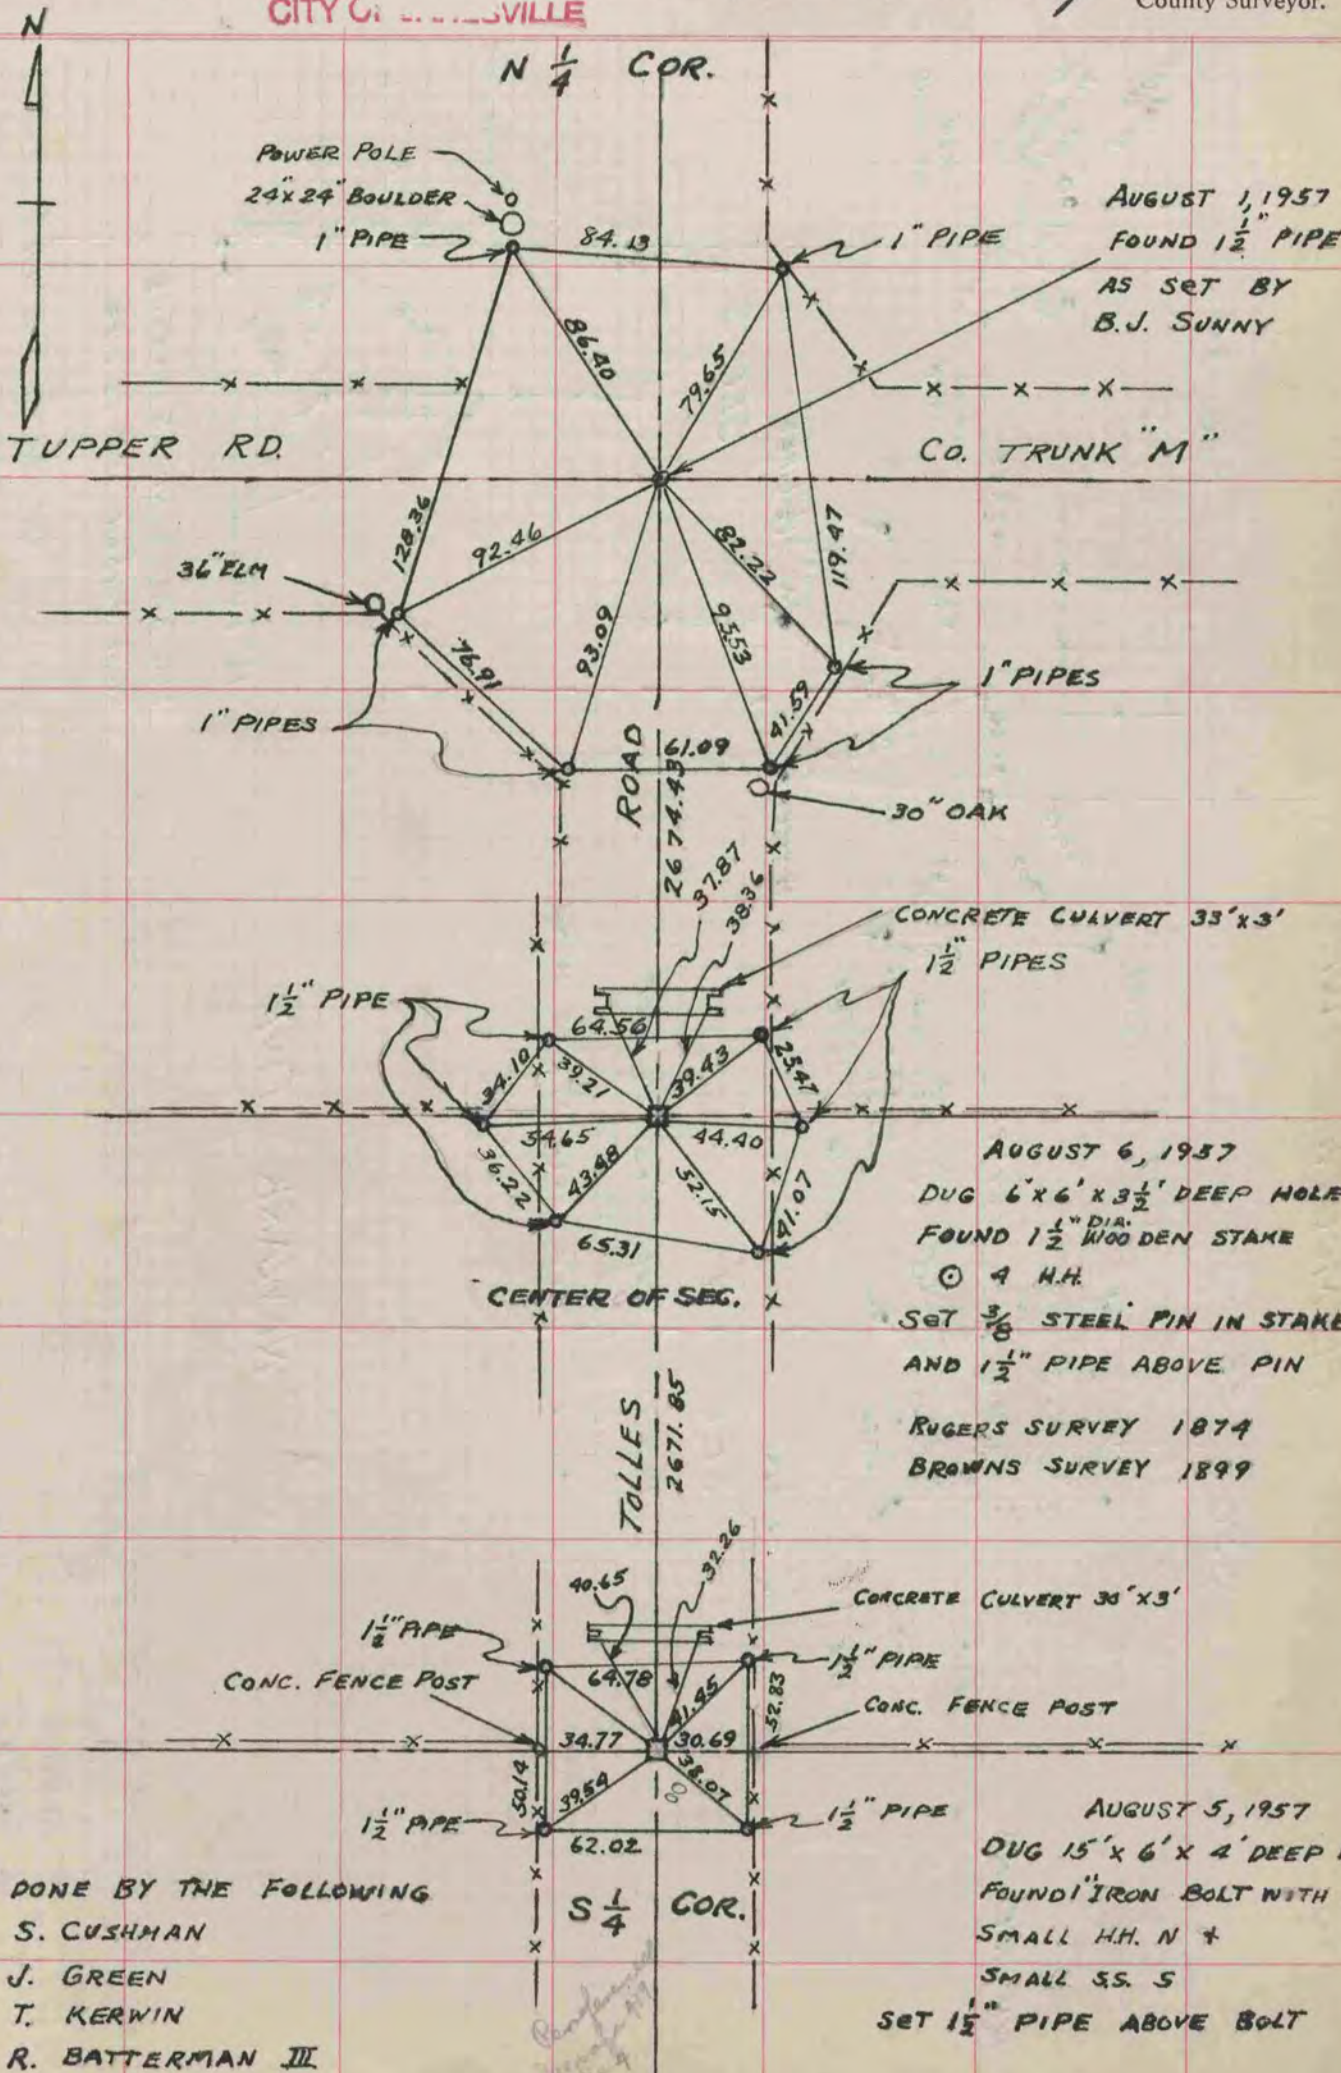 CITY OF
County Surveyor.
N
N 1/4 COR.
POWER POLE
24"x24" BOULDER
1" PIPE
84.13
1" PIPE
AUGUST 1, 1957
FOUND 1 1/2" PIPE
AS SET BY
B.J. SUNNY
86.40
79.65
TUPPER RD.
CO. TRUNK "M"
128.36
92.46
82.22
119.47
36" ELM
93.09
93.53
76.91
41.59
1" PIPES
1" PIPES
61.09
ROAD
2674.43
30" OAK
37.87
38.36
CONCRETE CULVERT 33'x3'
1 1/2" PIPES
1 1/2" PIPE
64.56
34.10
39.21
39.43
25.47
54.65
44.40
36.22
43.98
52.15
41.07
65.31
CENTER OF SEC.
AUGUST 6, 1957
DUG 6'x6'x3 1/2' DEEP HOLE
FOUND 1 1/2" DIA. WOODEN STAKE
⊙ 4 H.H.
SET 3/8 STEEL PIN IN STAKE
AND 1 1/2" PIPE ABOVE PIN
RUGERS SURVEY 1874
BROWNS SURVEY 1899
TOLLES
2671.85
40.65
32.26
CONCRETE CULVERT 30'x3'
1 1/2" PIPE
1 1/2" PIPE
CONC. FENCE POST
64.78
41.45
52.83
CONC. FENCE POST
34.77
30.69
50.14
39.54
38.07
1 1/2" PIPE
1 1/2" PIPE
62.02
S 1/4 COR.
AUGUST 5, 1957
DUG 15'x6'x4' DEEP
FOUND 1" IRON BOLT WITH
SMALL H.H. N +
SMALL S.S. S
SET 1 1/2" PIPE ABOVE BOLT
DONE BY THE FOLLOWING
S. CUSHMAN
J. GREEN
T. KERWIN
R. BATTERMAN III